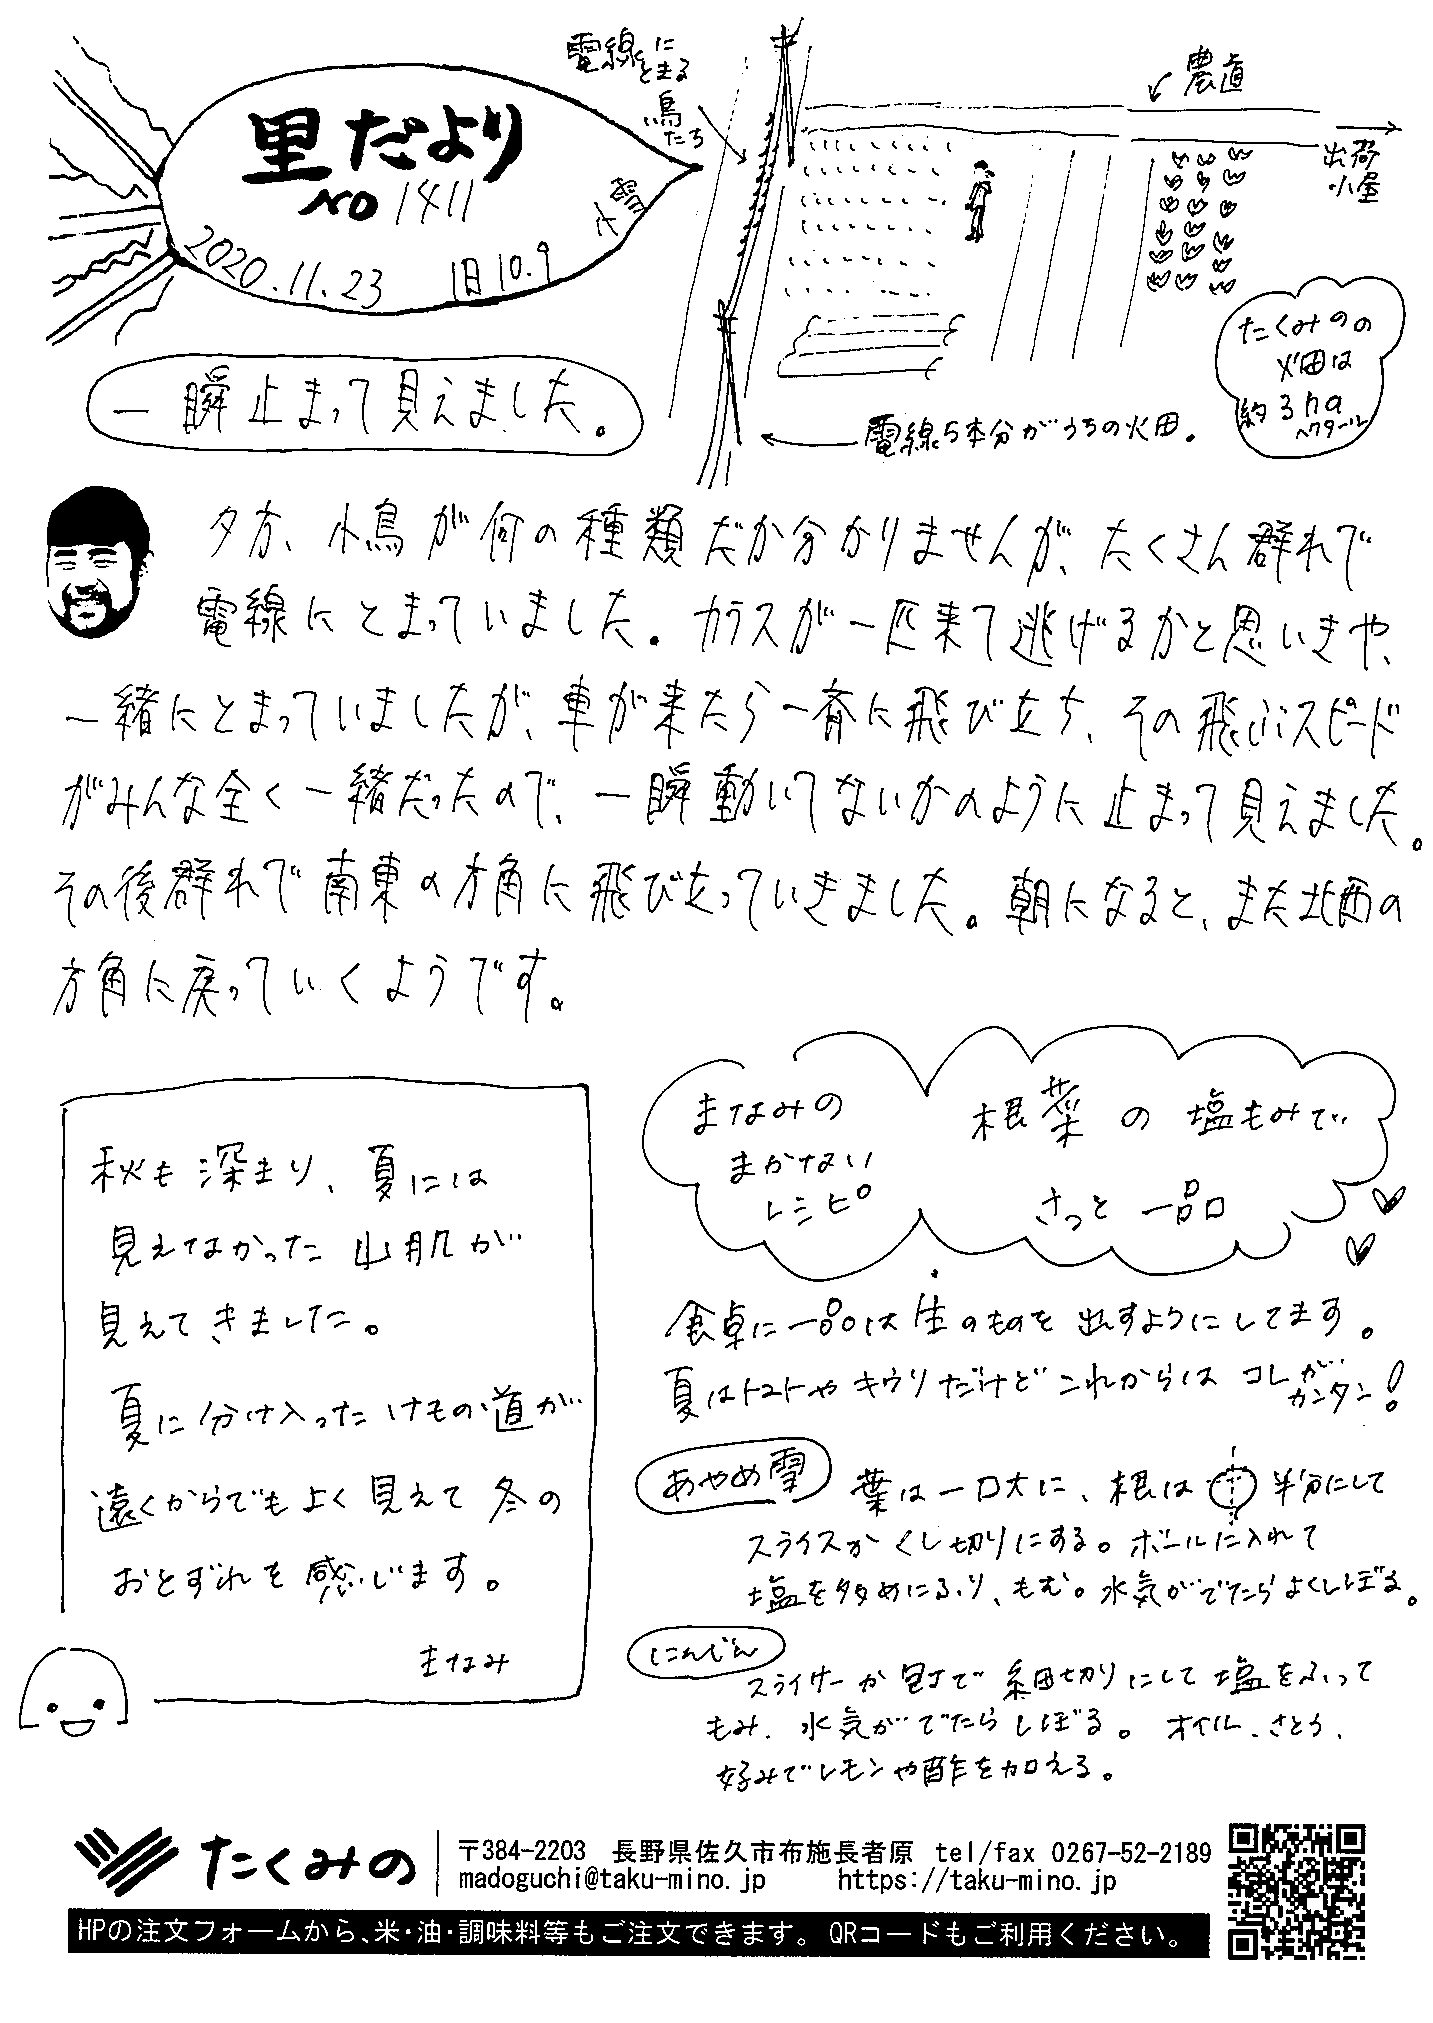 里だより
No 1411
2020.11.23 旧10.9
小雪
電線に
とまる
鳥
たち
農道
出荷
小屋
たくみのの
畑は
約3ha
ヘクタール
電線5本分がうちの畑。
一瞬止まって見えました。
夕方、小鳥が何の種類だか分かりませんが、たくさん群れで
電線にとまっていました。カラスが一匹来て逃げるかと思いきや、
一緒にとまっていましたが、車が来たら一斉に飛び立ち、その飛ぶスピード
がみんな全く一緒だったので、一瞬動いてないかのように止まって見えました。
その後群れで南東の方角に飛び立っていきました。朝になると、また北西の
方角に戻っていくようです。
秋も深まり、夏には
見えなかった山肌が
見えてきました。
夏に分け入ったけもの道が
遠くからでもよく見えて冬の
おとずれを感じます。
まなみ
まなみの
まかない
レシピ
根菜の塩もみで
さっと一品
食卓に一品は生のものを出すようにしてます。
夏はトマトやキウリだけどこれからは コレが
カンタン!
あやめ雪 葉は一口大に、根は 半分にして
スライスかくし切りにする。ボールに入れて
塩を多めにふり、もむ。水気がでたらよくしぼる。
にんじん
スライサーか包丁で細切りにして塩をふって
もみ、水気がでたらしぼる。オイル、さとう、
好みでレモンや酢を加える。
たくみの
〒384-2203 長野県佐久市布施長者原 tel/fax 0267-52-2189
madoguchi@taku-mino.jp https://taku-mino.jp
HPの注文フォームから、米・油・調味料等もご注文できます。QRコードもご利用ください。